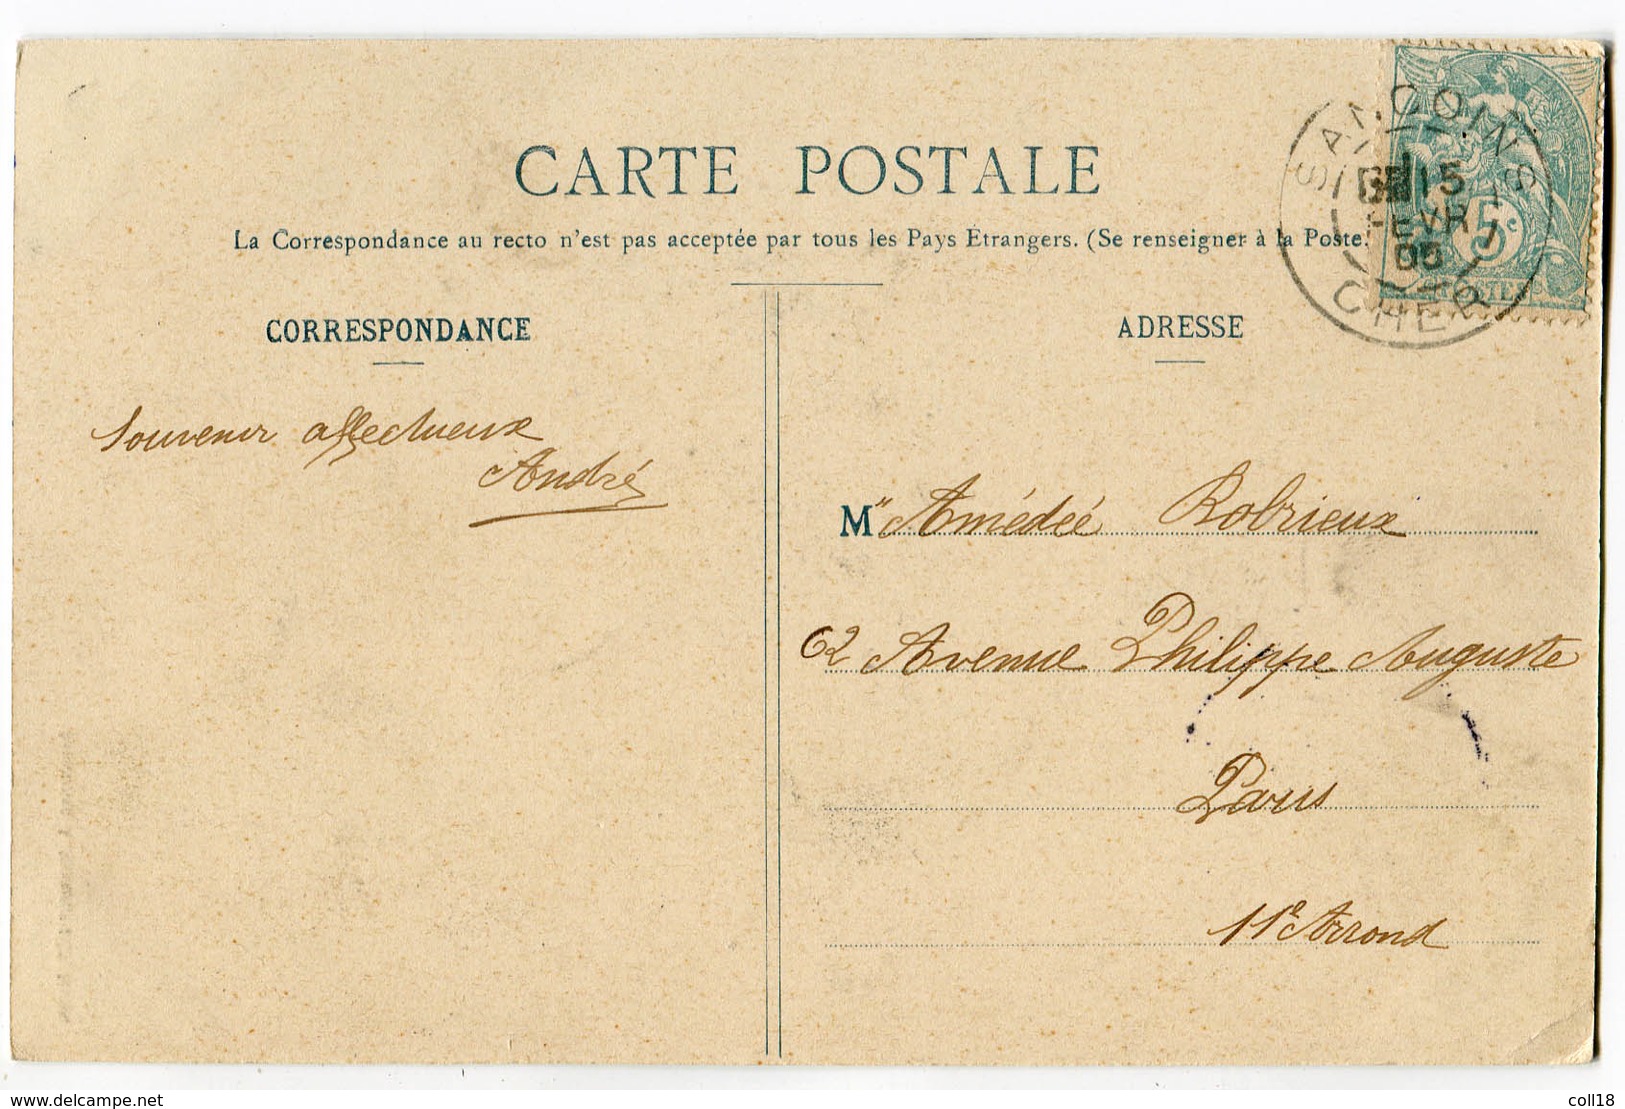 CARTE POSTALE
La Correspondance au recto n'est pas acceptée par tous les Pays Étrangers. (Se renseigner à la Poste.
SANCOINS
15
FEVR
CHER
5c
CORRESPONDANCE
ADRESSE
Souvenir affectueux
André
M" Amédée Robrieux
62 Avenue Philippe Auguste
Paris
11e Arrond
www.delcampe.net
coll18